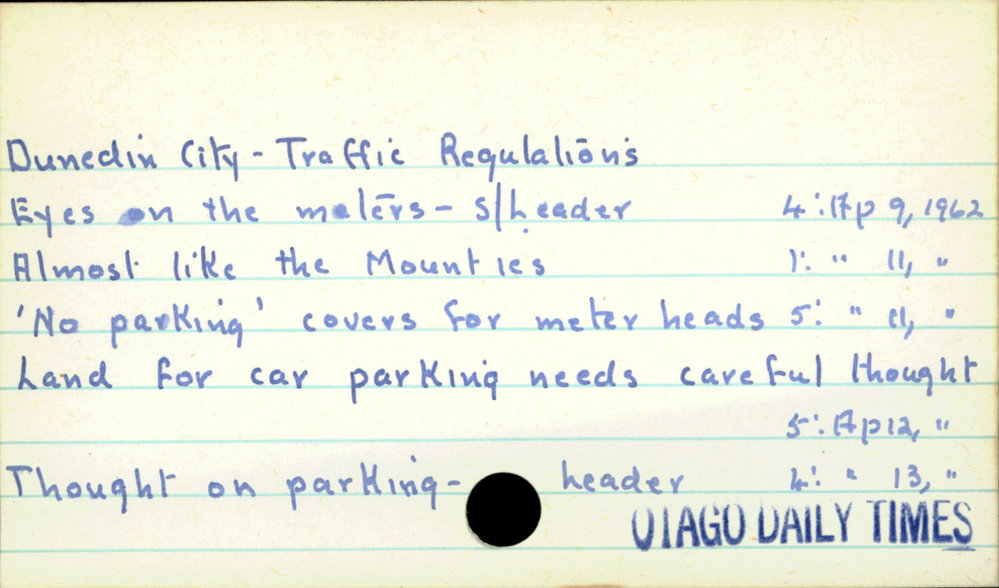 Dunedin City - Traffic Regulations
Eyes on the meters - S/header 4: Ap 9, 1962
Almost like the Mounties 1: " 11, "
'No parking' covers for meter heads 5: " 11, "
Land for car parking needs careful thought
5: Ap 12, "
Thought on parking - header 4: " 13, "
OTAGO DAILY TIMES